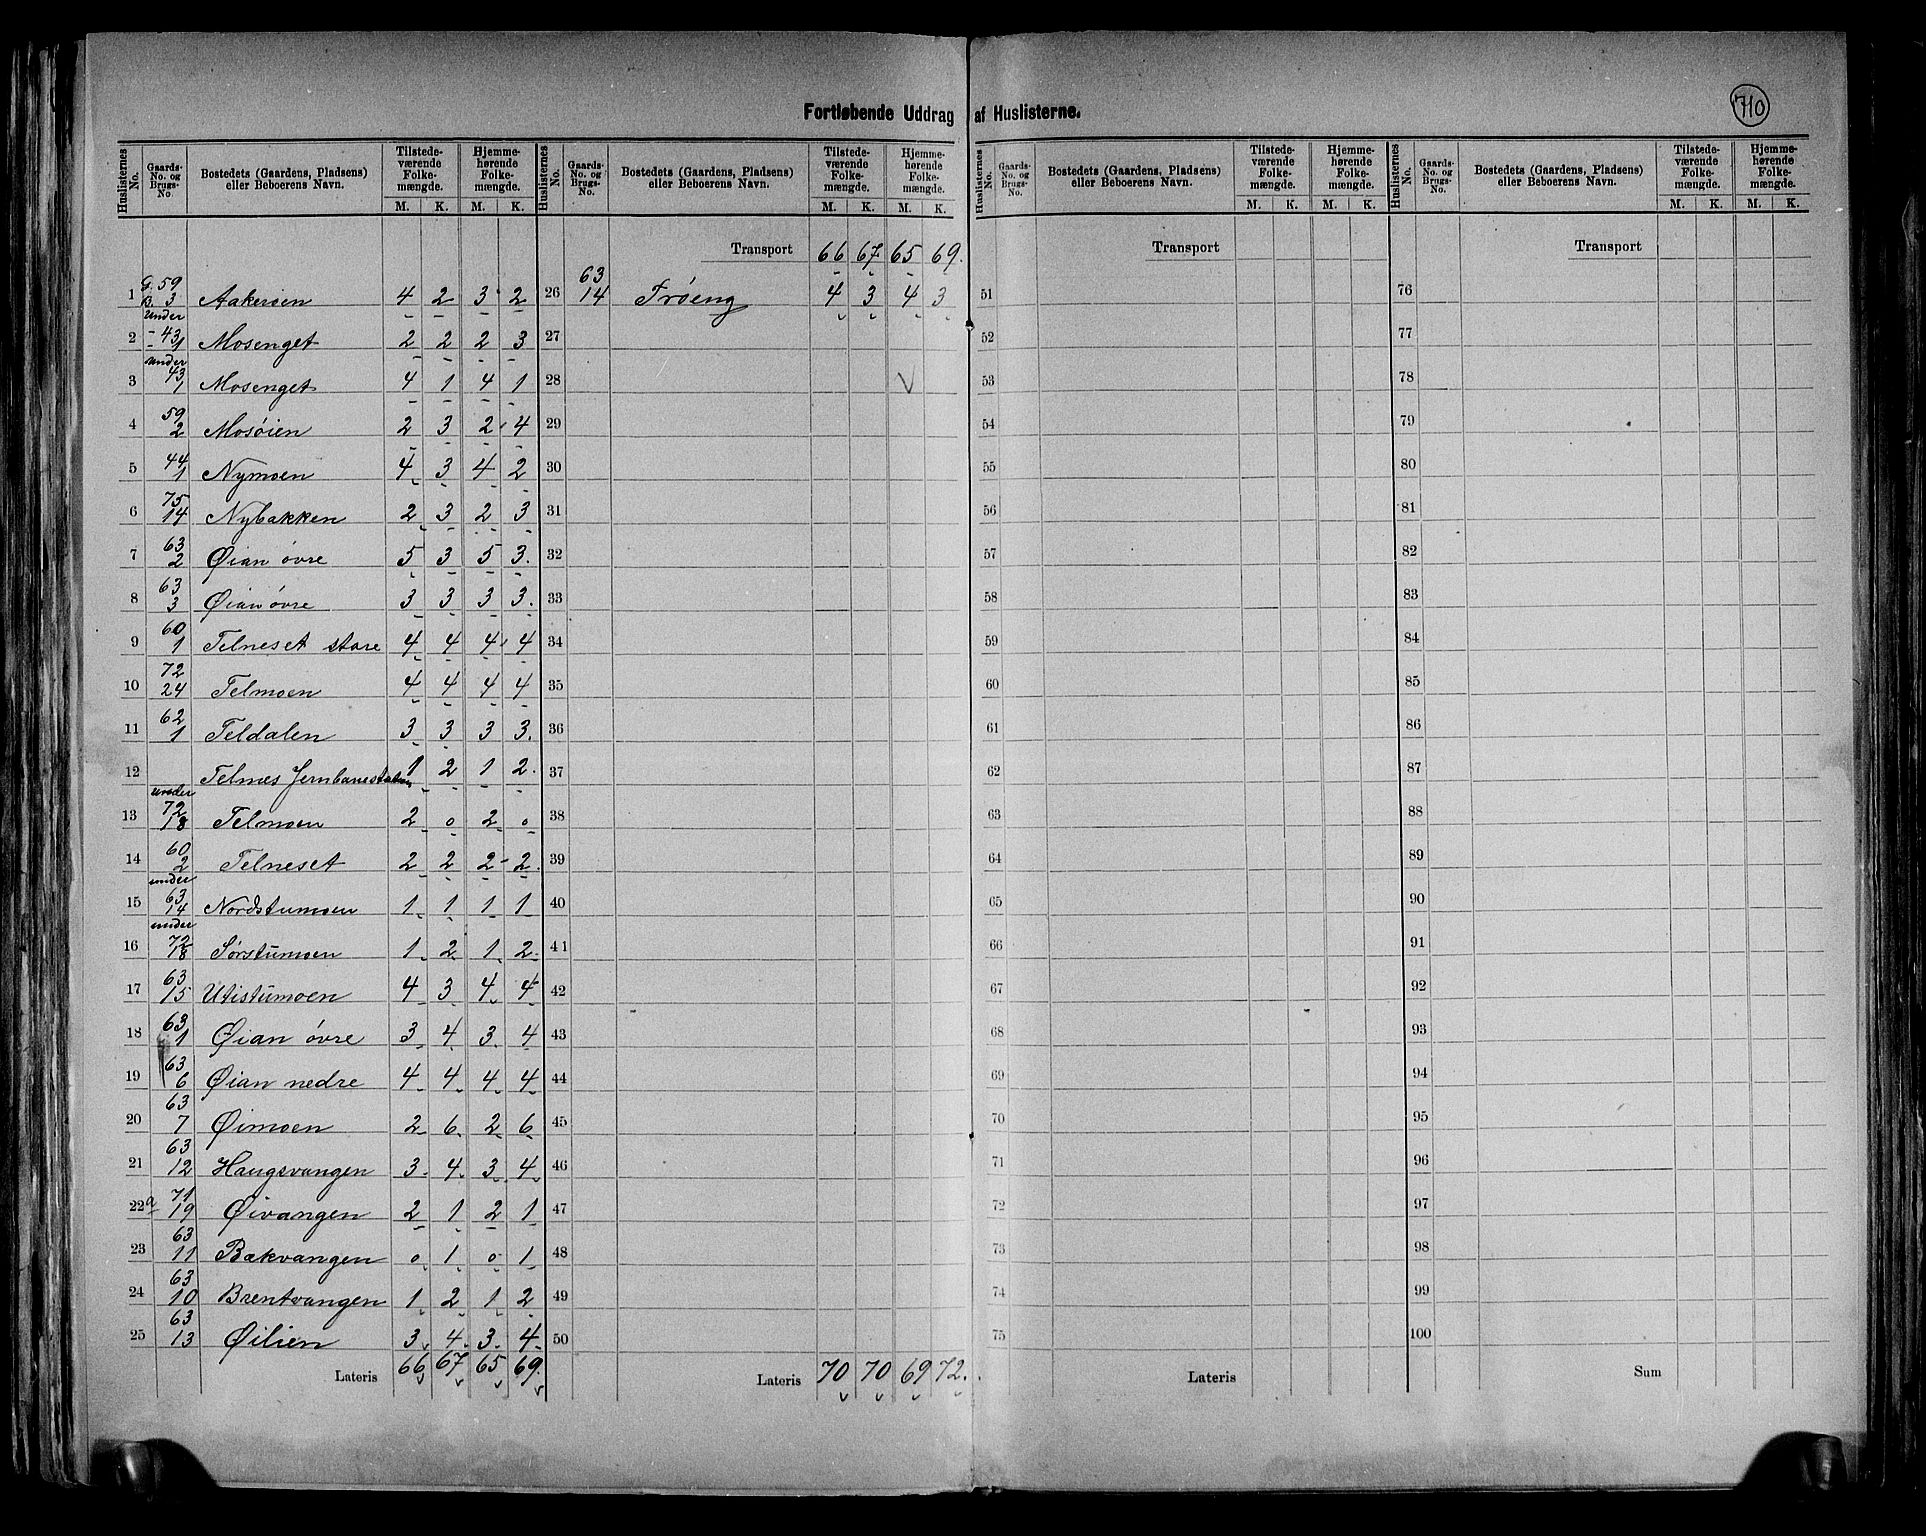 Fortløbende Uddrag af Huslisterne.
710
Huslisternes No. | Gaards-No. og Brugs-No. | Bostedets (Gaardens, Pladsens) eller Beboerens Navn. | Tilstedeværende Folkemængde. M. K. | Hjemmehørende Folkemængde. M. K.
Huslisternes No. | Gaards-No. og Brugs-No. | Bostedets (Gaardens, Pladsens) eller Beboerens Navn. | Tilstedeværende Folkemængde. M. K. | Hjemmehørende Folkemængde. M. K.
Huslisternes No. | Gaards-No. og Brugs-No. | Bostedets (Gaardens, Pladsens) eller Beboerens Navn. | Tilstedeværende Folkemængde. M. K. | Hjemmehørende Folkemængde. M. K.
Huslisternes No. | Gaards-No. og Brugs-No. | Bostedets (Gaardens, Pladsens) eller Beboerens Navn. | Tilstedeværende Folkemængde. M. K. | Hjemmehørende Folkemængde. M. K.
1 G. 59 B. 3 Aakerøen 4 2 3 2
2 under 43 1 Mosenget 2 2 2 3
3 under 43 1 Mosenget 4 1 4 1
4 59 2 Mosøien 2 3 2 4
5 44 1 Nymoen 4 3 4 2
6 75 14 Nybakken 2 3 2 3
7 63 2 Øian øvre 5 3 5 3.
8 63 3 Øian øvre 3 3 3 3.
9 60 1 Telneset store 4 4 4 4
10 72 24 Telmoen 4 4 4 4
11 62 1 Teldalen 3 3 3 3.
12 Telnes Jernbanestation 1 2 1 2.
13 under 72 18 Telmoen 2 0 2 0
14 60 2 Telneset 2 2 2 2.
15 under 63 14 Nordstumoen 1 1 1 1
16 under 72 18 Sørstumoen 1 2 1 2
17 63 15 Utistumoen 4 3 4 4
18 63 1 Øian øvre 3 4 3 4
19 63 6 Øian nedre 4 4 4 4
20 63 7 Øimoen 2 6 2 6
21 63 12 Haugsvangen 3 4 3 4
22a 71 19 Øivangen 2 1 2 1
23 63 11 Bækvangen 0 1 0 1
24 63 10 Brentvangen 1 2 1 2
25 63 13 Øilien 3 4 3 4
Lateris 66 67 65 69.
Transport 66 67 65 69.
26 63 14 Trøeng 4 3 4 3
27
28
29
30
31
32
33
34
35
36
37
38
39
40
41
42
43
44
45
46
47
48
49
50
Lateris 70 70 69 72.
Transport
51
52
53
54
55
56
57
58
59
60
61
62
63
64
65
66
67
68
69
70
71
72
73
74
75
Lateris
Transport
76
77
78
79
80
81
82
83
84
85
86
87
88
89
90
91
92
93
94
95
96
97
98
99
100
Sum